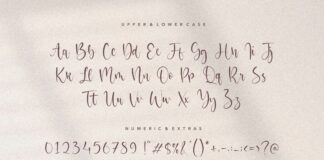 UPPER & LOWER CASE
Aa Bb Cc Dd Ee Ff Gg Hh Ii Jj
Kk Ll Mm Nn Oo Pp Qq Rr Ss
Tt Uu Vv Ww Xx Yy Zz
NUMERIC & EXTRAS
0123456789